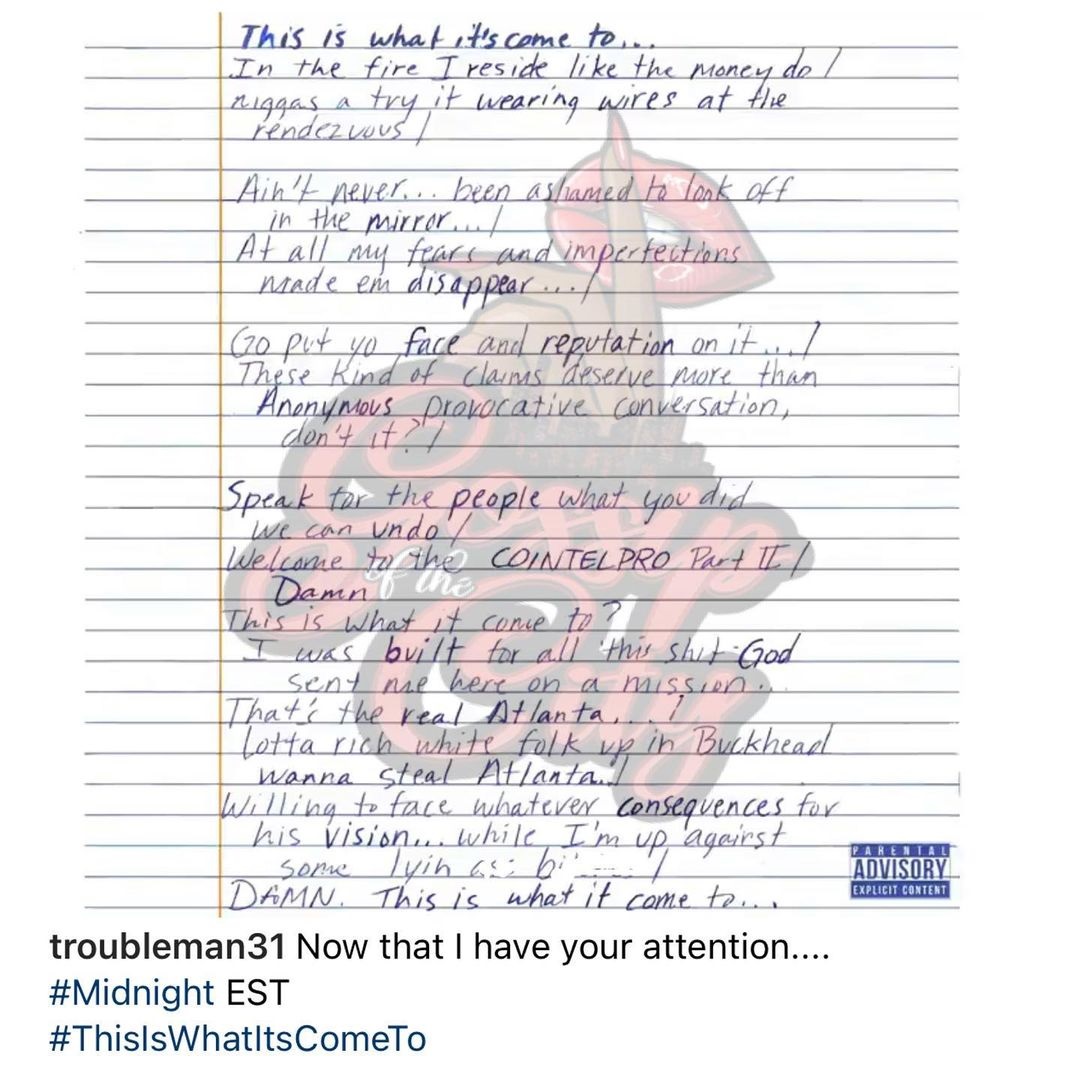 This is what it's come to...
In the fire I reside like the money do /
niggas a try it wearing wires at the
rendezvous /
Ain't never... been ashamed to look off
in the mirror... /
At all my fears and imperfections
made em disappear... /
Go put yo face and reputation on it... /
These kind of claims deserve more than
Anonymous provocative conversation,
don't it? /
Speak for the people what you did
we can undo /
Welcome to the COINTELPRO Part II /
Damn
This is what it come to?
I was built for all this shit-God
sent me here on a mission..
That's the real Atlanta... /
Lotta rich white folk up in Buckhead
wanna steal Atlanta.. /
Willing to face whatever consequences for
his vision... while I'm up against
some lyin /
DAMN. This is what it come to...
Gossip
of the
City
PARENTAL
ADVISORY
EXPLICIT CONTENT
troubleman31 Now that I have your attention....
#Midnight EST
#ThisIsWhatItsComeTo